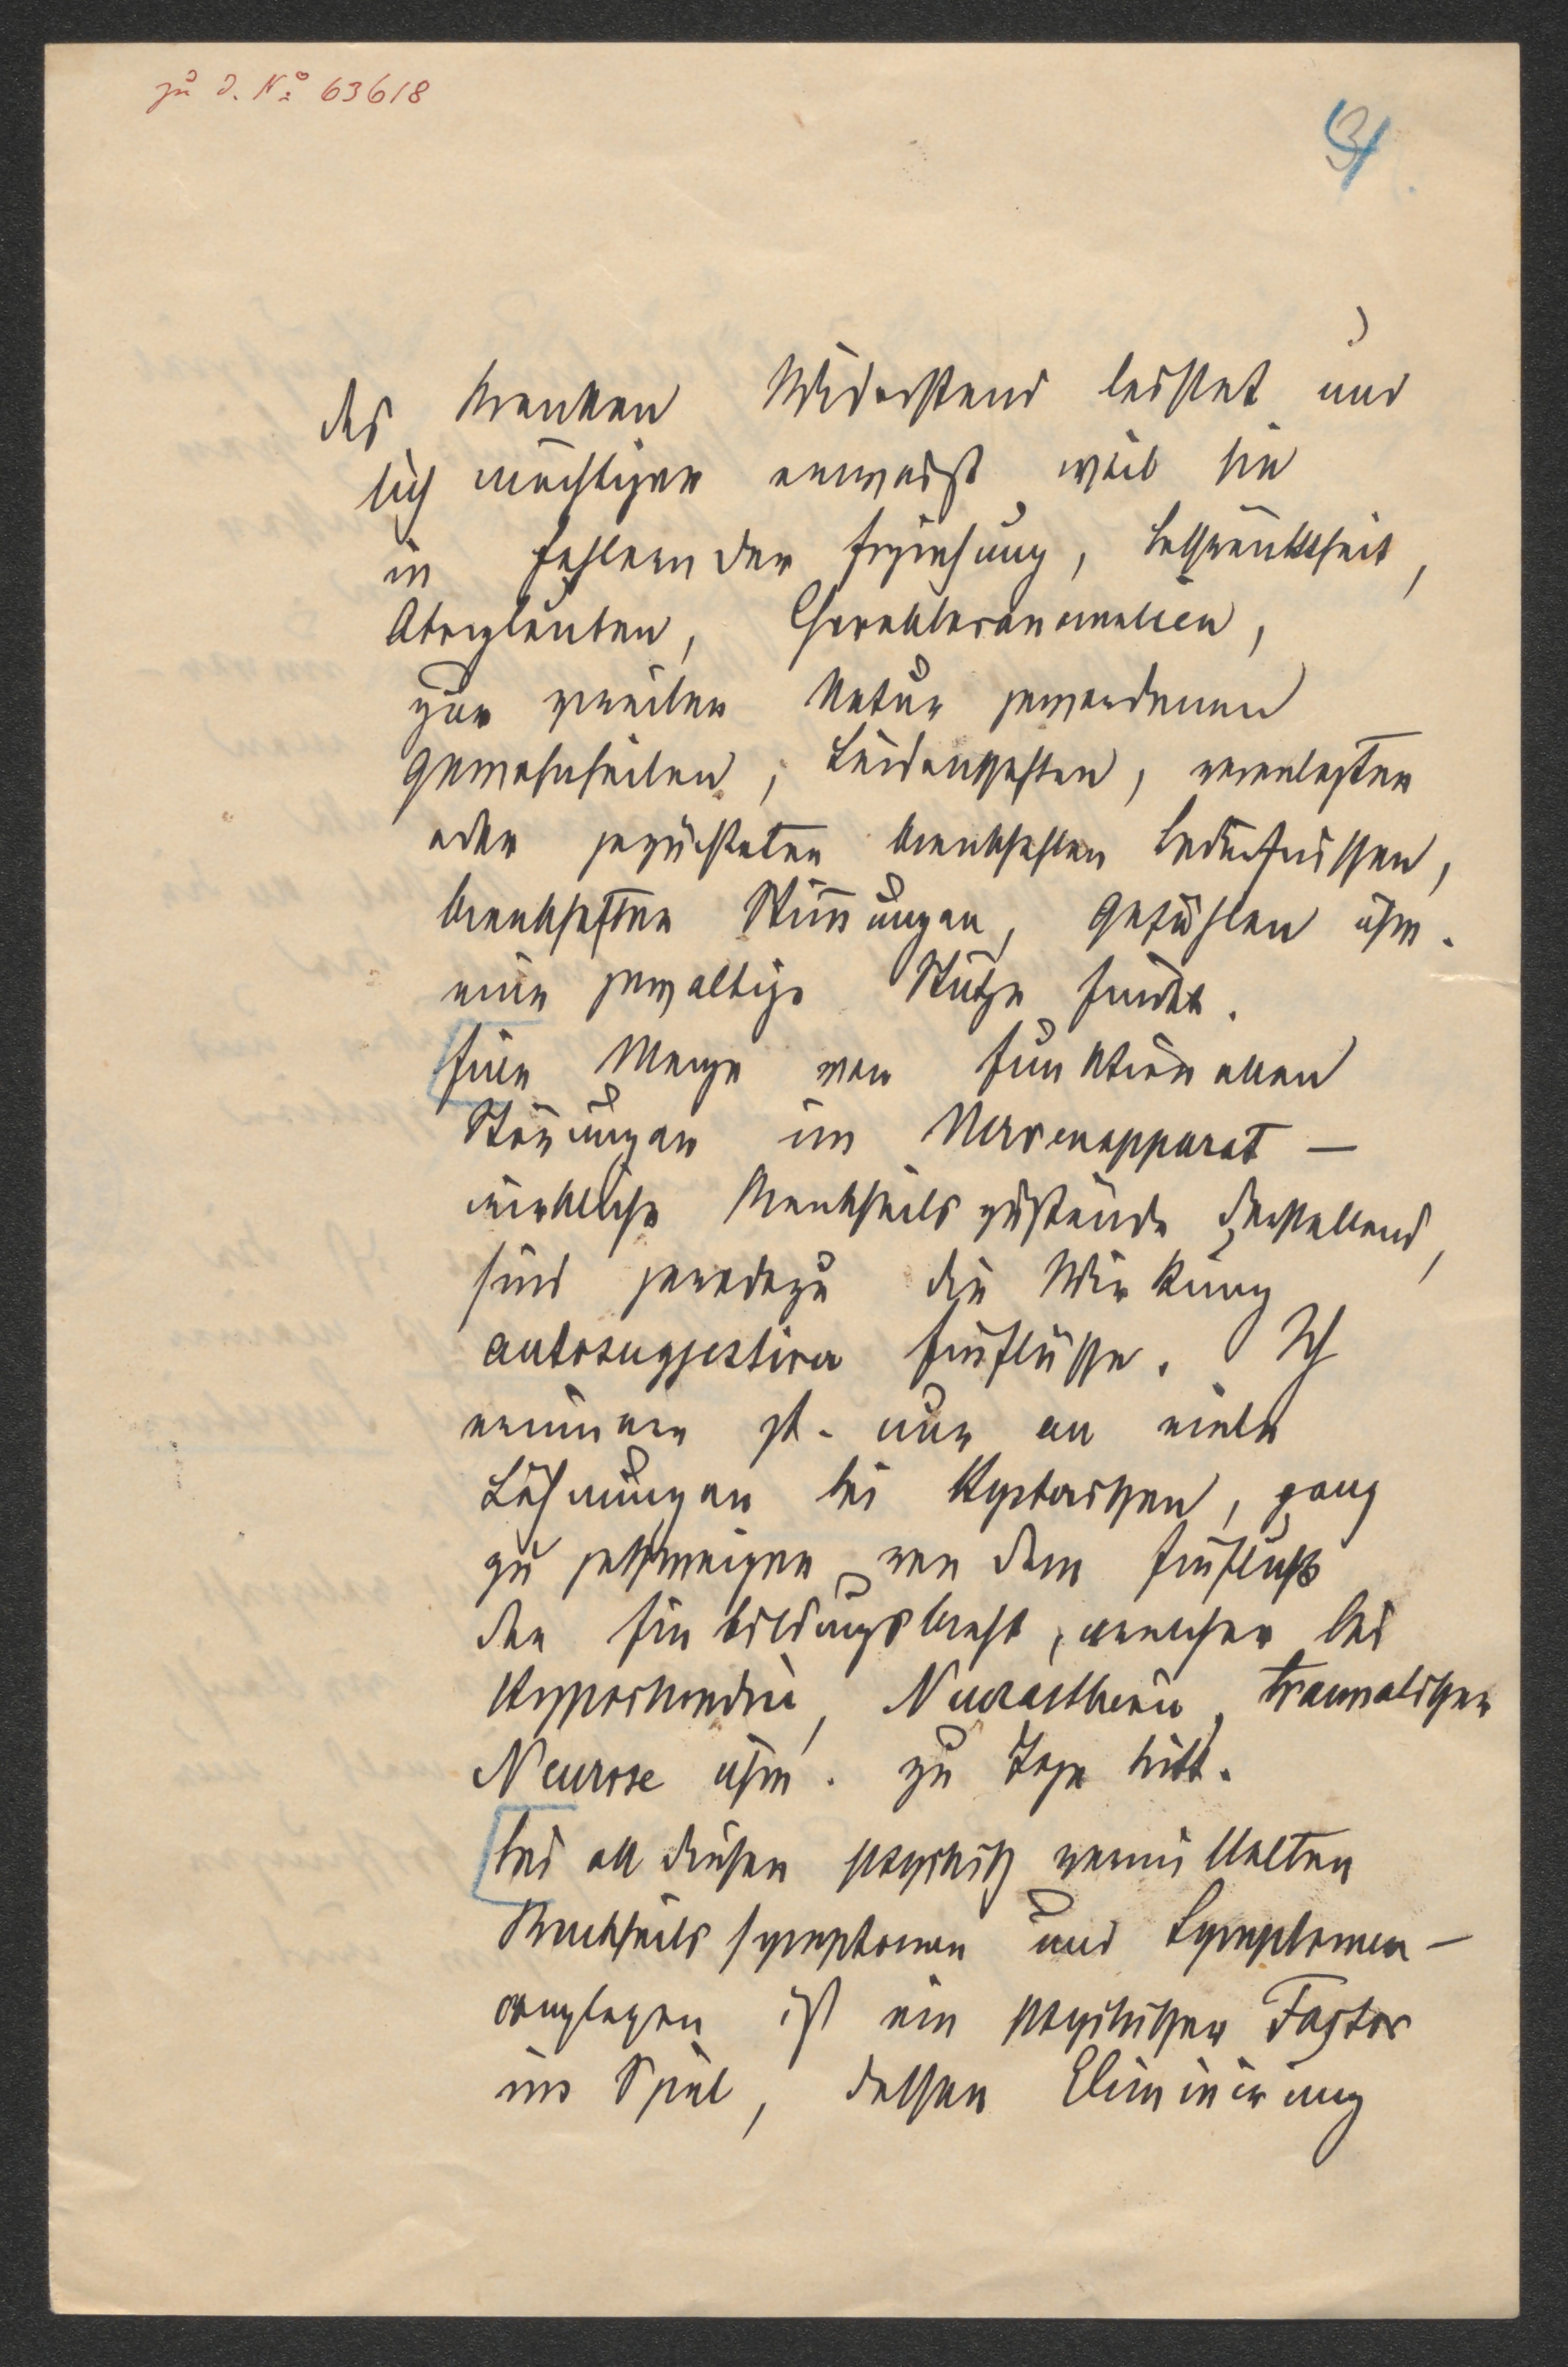 zu J. № 63618
31
des Kranken Widerstand leistet und
sich mächtiger erweist weil sie
in Fehlern der Erziehung, Beschränktheit,
Aberglauben, Charakteranomalien,
zur zweiten Natur gewordenen
Gewohnheiten, Leidenschaften, veranlagten
oder gezüchteten krankhaften Bedürfnissen,
krankhaften Stimungen, Gefühlen usw.
eine gewaltige Stütze findet.
Eine Menge von funktionellen
Störungen im Nervenapparat —
wirkliche Krankheitszustände darstellend,
sind geradezu die Wirkung
autosuggestiver Einflüsse. Ich
erinnere nur an viele
Lähmungen bei Hysterischen, ganz
zu geschweigen von dem Einfluß
der Einbildungskraft, welcher bei
Hypochondrie, Neurasthenie, traumatischer
Neurose usw. zu Tage tritt.
Bei all diesen psychisch vermittelten
Krankheitssymptomen und Symptomen-
complexen ist ein psychischer Factor
im Spiel, dessen Eliminirung